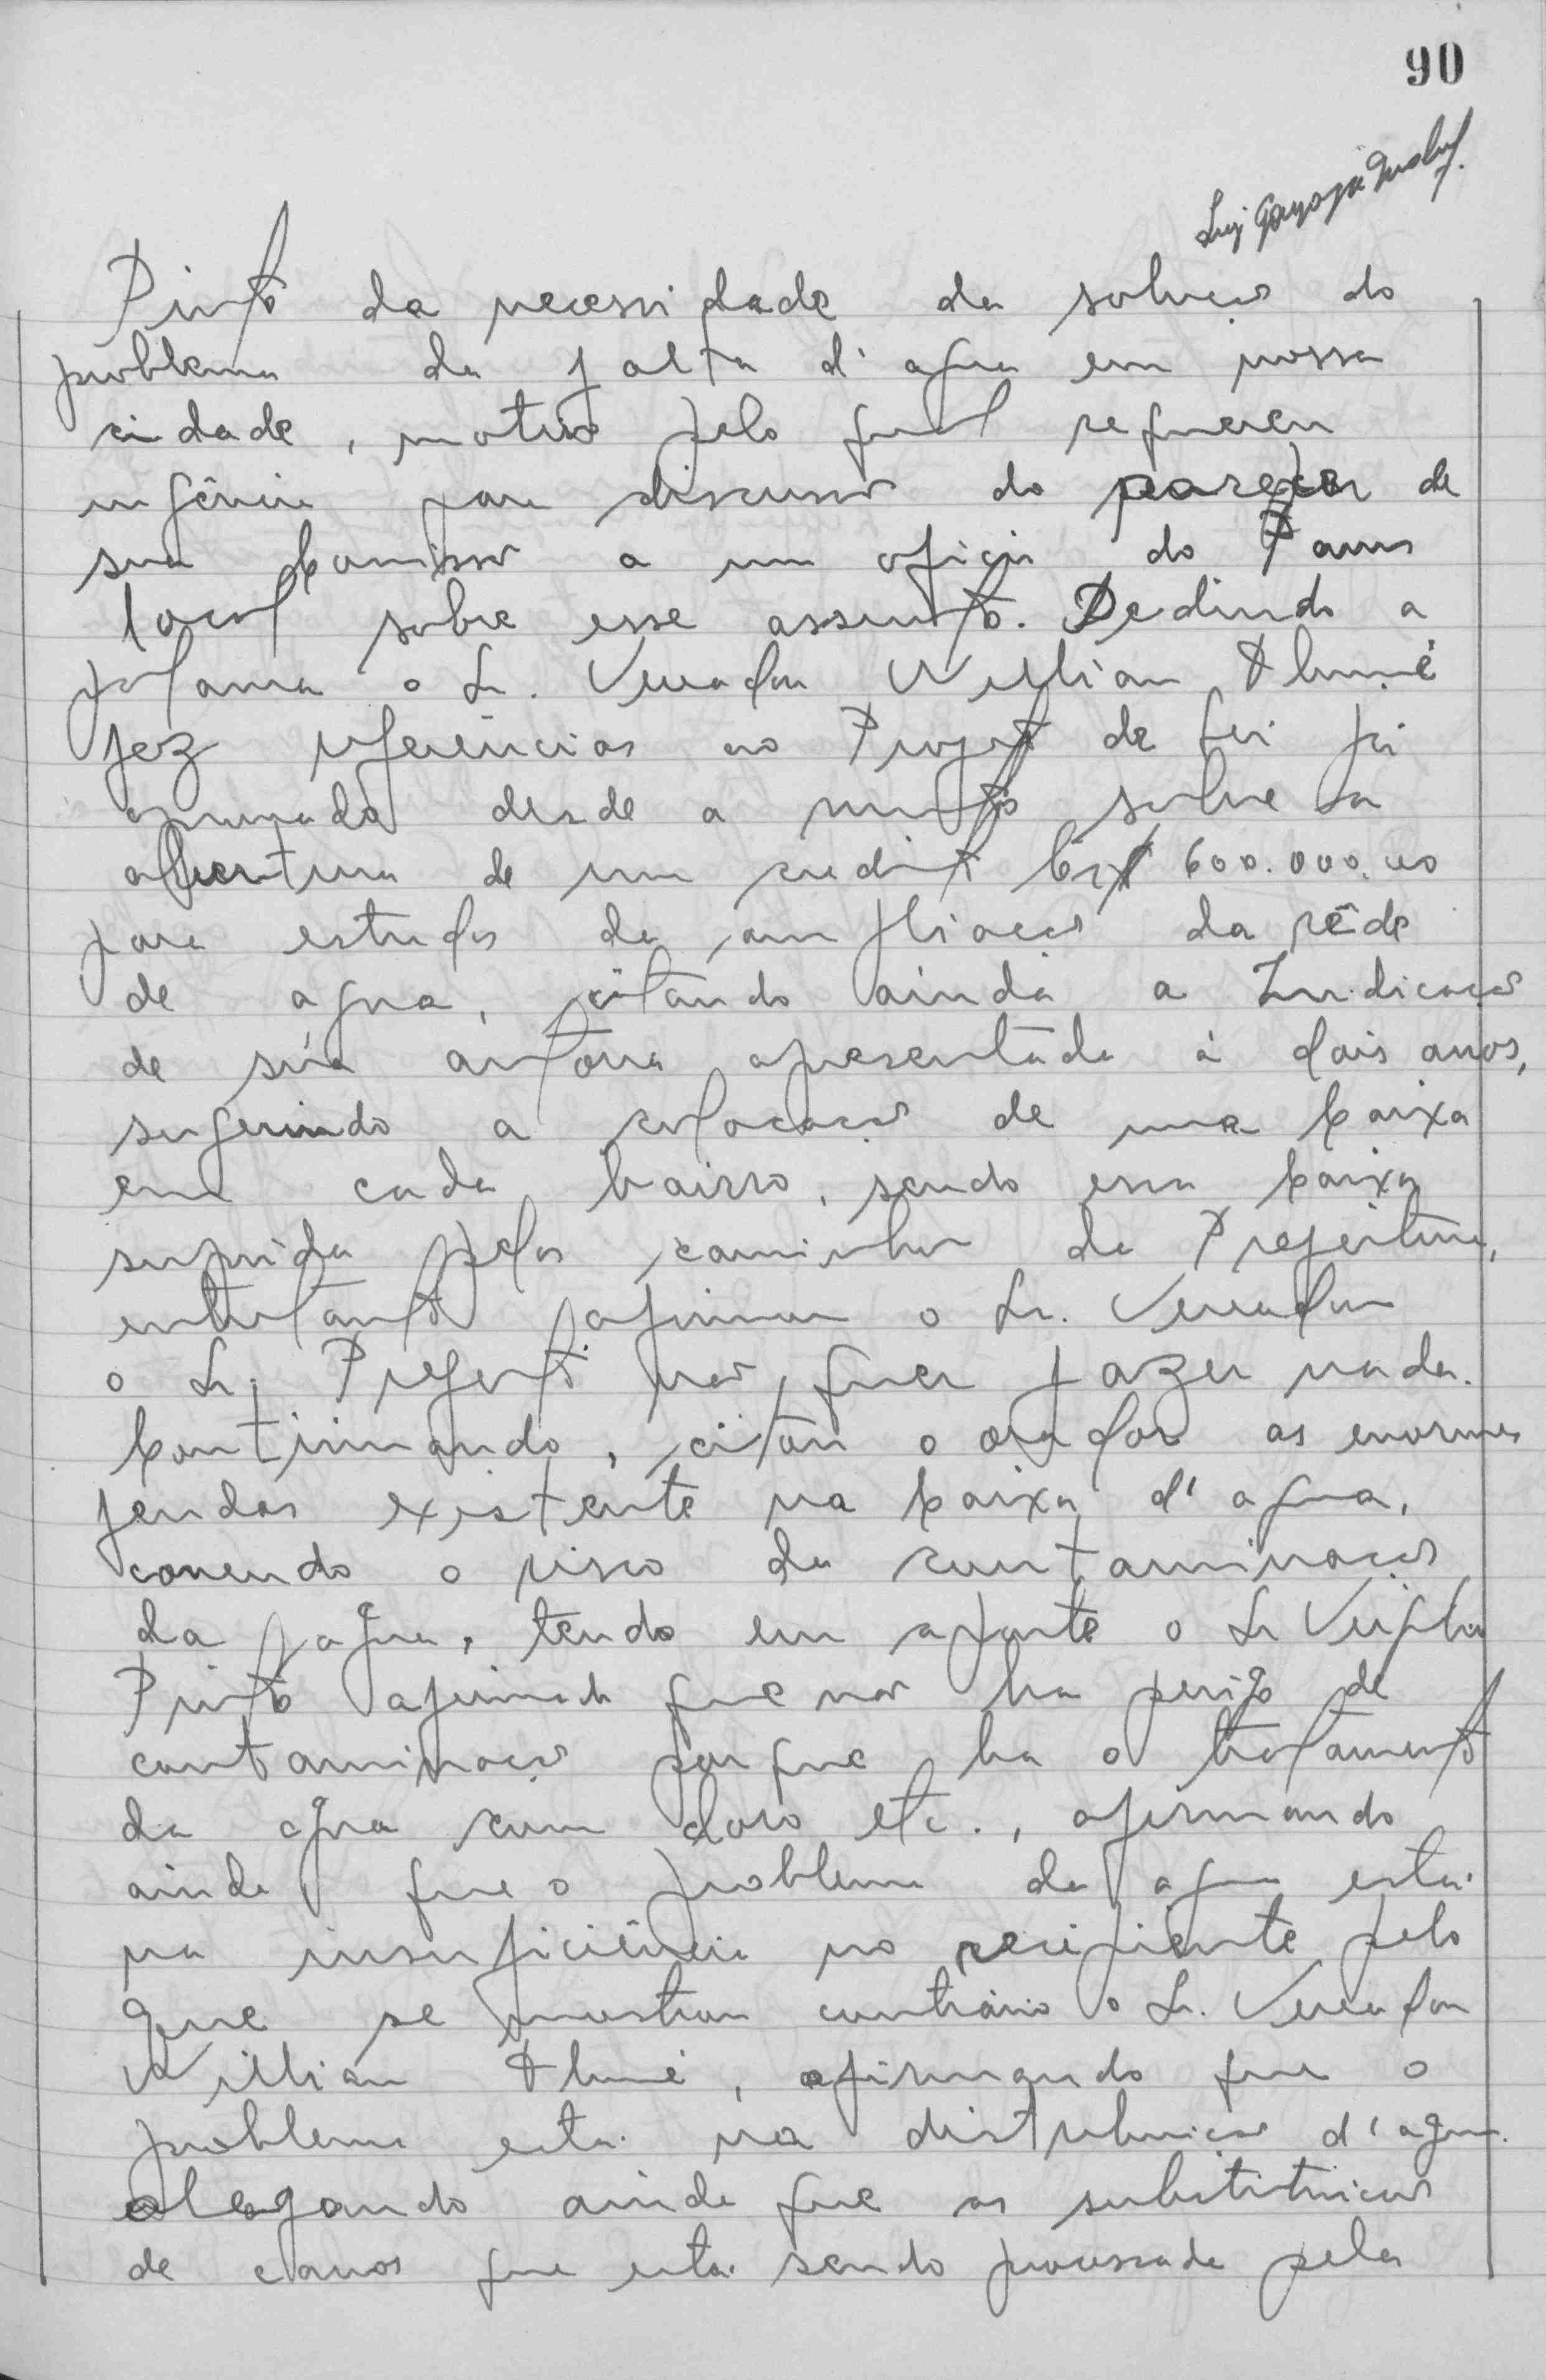 90
Luiz Gonzaga
Pinto da necessidade da solução do
problema da falta d'agua em nossa
cidade, motivo pelo qual requereu
urgência para discussão do parecer de
sua Comissão a um oficio do
local sobre esse assunto. Pedindo a
palavra o Sr. Vereador Willian Thomé
fez referências ao Projeto de Lei já
aprovado desde a muito sobre a
abertura de um credito Cr$ 600.000.00
para estudos da ampliação da rêde
de agua, citando ainda a Indicação
de súa autoria apresentada á dois anos,
sugerindo a colocação de uma Caixa
em cada bairro, sendo essa Caixa
suprida pelos caminhão da Prefeitura,
entretanto afirmou o Sr. Vereador
o Sr. Prefeito não quer fazer nada.
Continuando, citou o orador as enormes
fendas existente na Caixa d'agua,
correndo o risco da contaminação
da agua, tendo em aparte o Sr Virgilio
Pinto afirmado que não ha perigo de
contaminação porque ha o tratamento
da agua com cloro etc., afirmando
ainda que o problema da agua está
na insuficiência no recipiente pelo
que se mostrou contrário o Sr. Vereador
Willian Thomé, afirmando que o
problema está na distribuição d'agua.
alegando ainda que as substituicão
de canos que está sendo processada pela